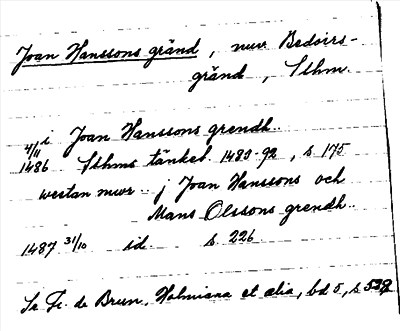 Joan Hanssons gränd, nuv Bedoirs-
gränd, Sthm.
4/11 1486 i Joan Hanssons grendh..
Sthms tänkeb. 1483-92, s 175
westan mwr.. j Joan Hanssons och
Mans Olssons grendh..
1487 31/10 id s 226
Se Fr. de Brun, Holmiana et alia, bd 5, s 539